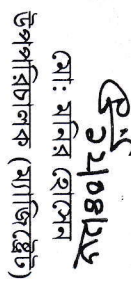 ১২/০৪/১৮
মোঃ মনির হোসেন
উপপরিচালক (ম্যাজিস্ট্রেট)